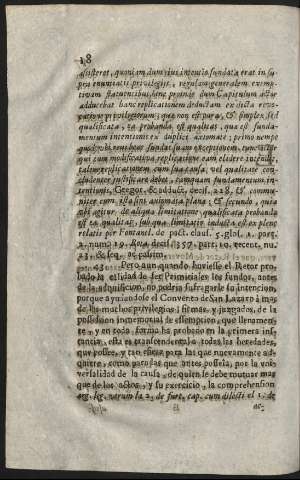 18
assisteret, quoniam dum eius intentio fundata erat in su-
pra enuntiatis privilegijs, regulam generalem exemp-
tivam statuentibus, hanc protinùs dum Capitulum actor
adducebat hanc replicationem deductam ex dicta revo-
catione privilegiorum; quæ non est pura, & simplex, sed
qualificata, ea probanda est qualitas, quæ est funda-
mentum intentionis ex duplici axiomate; primo nempe
qui cum modificativa replicatione eam elidere intendit,
talem replicationem cum sua causa, vel qualitate con-
cludenter iustificare debet, tamquam fundamentum in-
tentionis, Gregor. & addict. decis. 228, & commu-
niter cum est actio animata plana; & secundo, quia
ubi agitur de aliqua limitatione, qualificata probanda
est ea qualitas, sub qua limitatio inducta est ex plenè
relatis per Fontanel. de pact. claus. 5. glos. 1. part.
2. num. 19. Rota decis. 357. part. 10. recent. nu.
21. & seq. & passim.
43 Pero aun quando huviesse el Retor pro-
bado la calidad de ser Primiciales los fundos, antes
de la adquisicion, no podria sufragarle su intencion,
porque aviendose el Convento de San Lazaro à mas
de los muchos privilegios, firmas, y juzgados, de la
possession inmemorial de essempcion, que llenamen-
te, y en toda forma ha probado en la primera ins-
tancia, esta es transcendental à todas las heredades,
que possee, y tan eficaz para las que nuevamente ad-
quiere, como para las que antes posseìa, por la vni-
versalidad de la causa, de quien se debe mutuar mas
que de los actos, y su exercicio, la comprehension
arg. leg. verum la 2. de furt. cap. cum dilecti el 1. de
ac-